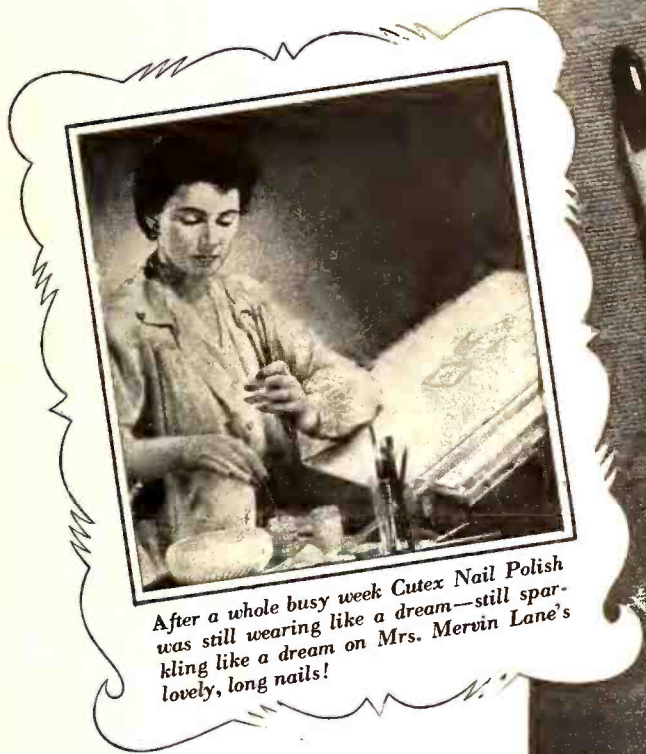 After a whole busy week Cutex Nail Polish
was still wearing like a dream—still spar-
kling like a dream on Mrs. Mervin Lane's
lovely, long nails!